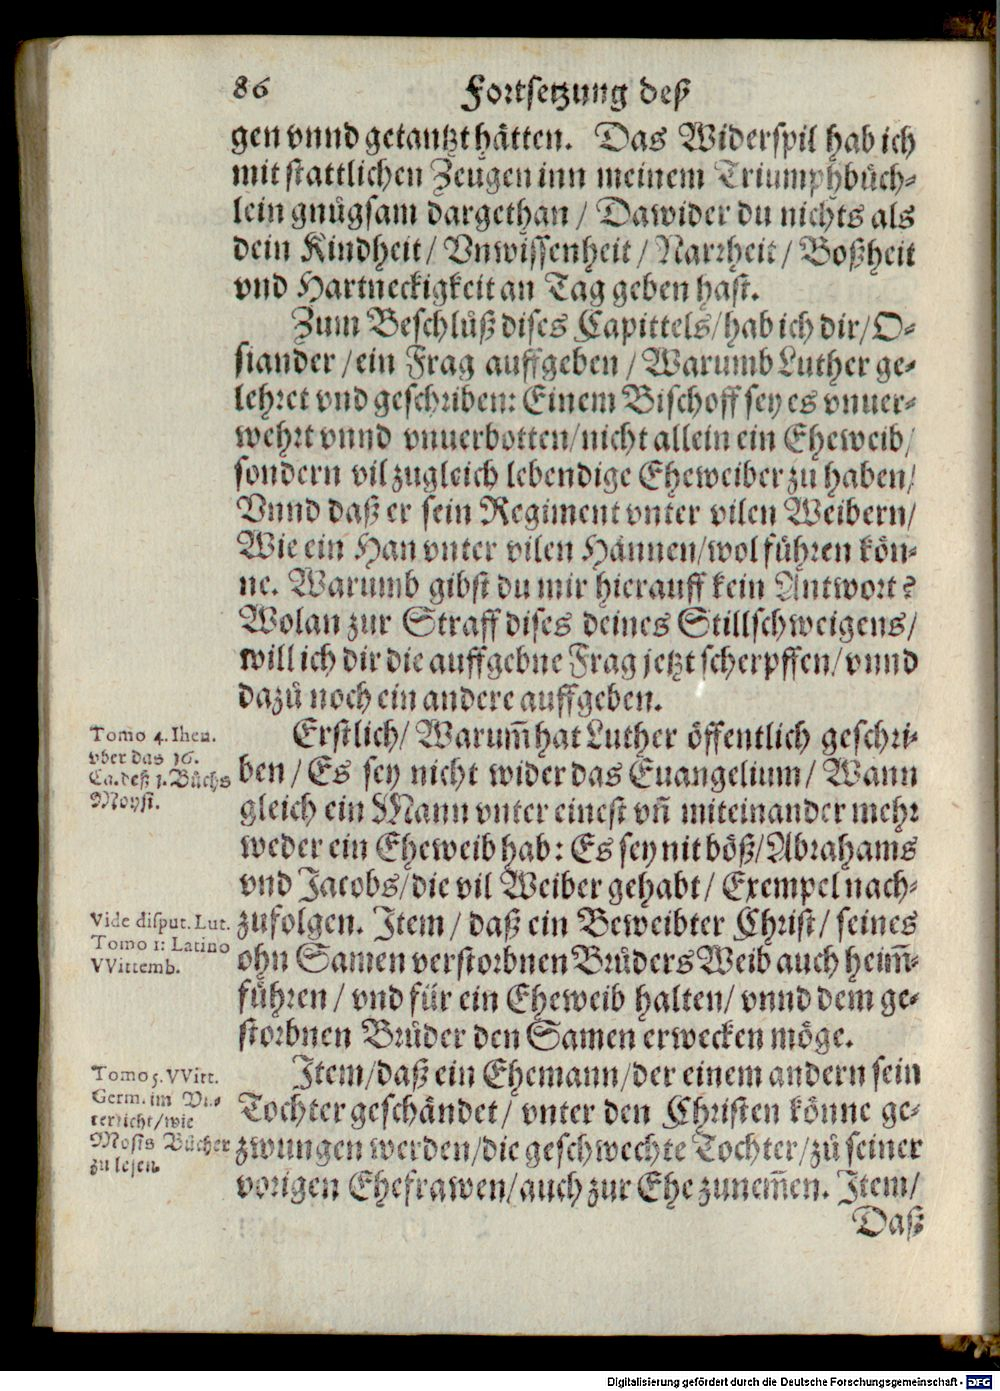 86 Fortsetzung deß
gen vnnd getantzt hätten. Das Widerspil hab ich
mit stattlichen Zeugen inn meinem Triumphbüch-
lein gnůgsam dargethan / Dawider du nichts als
dein Kindheit / Vnwissenheit / Narrheit / Boßheit
vnd Hartneckigkeit an Tag geben hast.
Zum Beschluß dises Capittels/ hab ich dir/ O-
siander / ein Frag auffgeben / Warumb Luther ge-
lehret vnd geschriben: Einem Bischoff sey es vnuer-
wehrt vnnd vnuerbotten/ nicht allein ein Eheweib/
sondern vil zugleich lebendige Eheweiber zu haben/
Vnnd daß er sein Regiment vnter vilen Weibern/
Wie ein Han vnter vilen Hännen/ wol führen kön-
ne. Warumb gibst du mir hierauff kein Antwort?
Wolan zur Straff dises deines Stillschweigens/
will ich dir die auffgebne Frag jetzt scherpffen/ vnnd
dazů noch ein andere auffgeben.
Tomo 4. Ihen.
vber das 16.
Ca. deß 1. Bůchs
Moysi.
Erstlich/ Warum̃ hat Luther öffentlich geschri-
ben / Es sey nicht wider das Euangelium/ Wann
gleich ein Mann vnter einest vñ miteinander mehr
weder ein Eheweib hab: Es sey nit böß/ Abrahams
vnd Jacobs/ die vil Weiber gehabt / Exempel nach-
Vide disput. Lut.
Tomo 1: Latino
VVittemb.
zufolgen. Item / daß ein Beweibter Christ/ seines
ohn Samen verstorbnen Brůders Weib auch heim̃-
führen / vnd für ein Eheweib halten/ vnnd dem ge-
storbnen Brůder den Samen erwecken möge.
Tomo 5. VVitt.
Germ. im Vn-
terricht/ wie
Mosis Bücher
zu lesen.
Item/ daß ein Ehemann/ der einem andern sein
Tochter geschändet/ vnter den Christen könne ge-
zwungen werden/ die geschwechte Tochter/ zů seiner
vorigen Ehefrawen/ auch zur Ehe zunem̃en. Item/
Daß
Digitalisierung gefördert durch die Deutsche Forschungsgemeinschaft - DFG